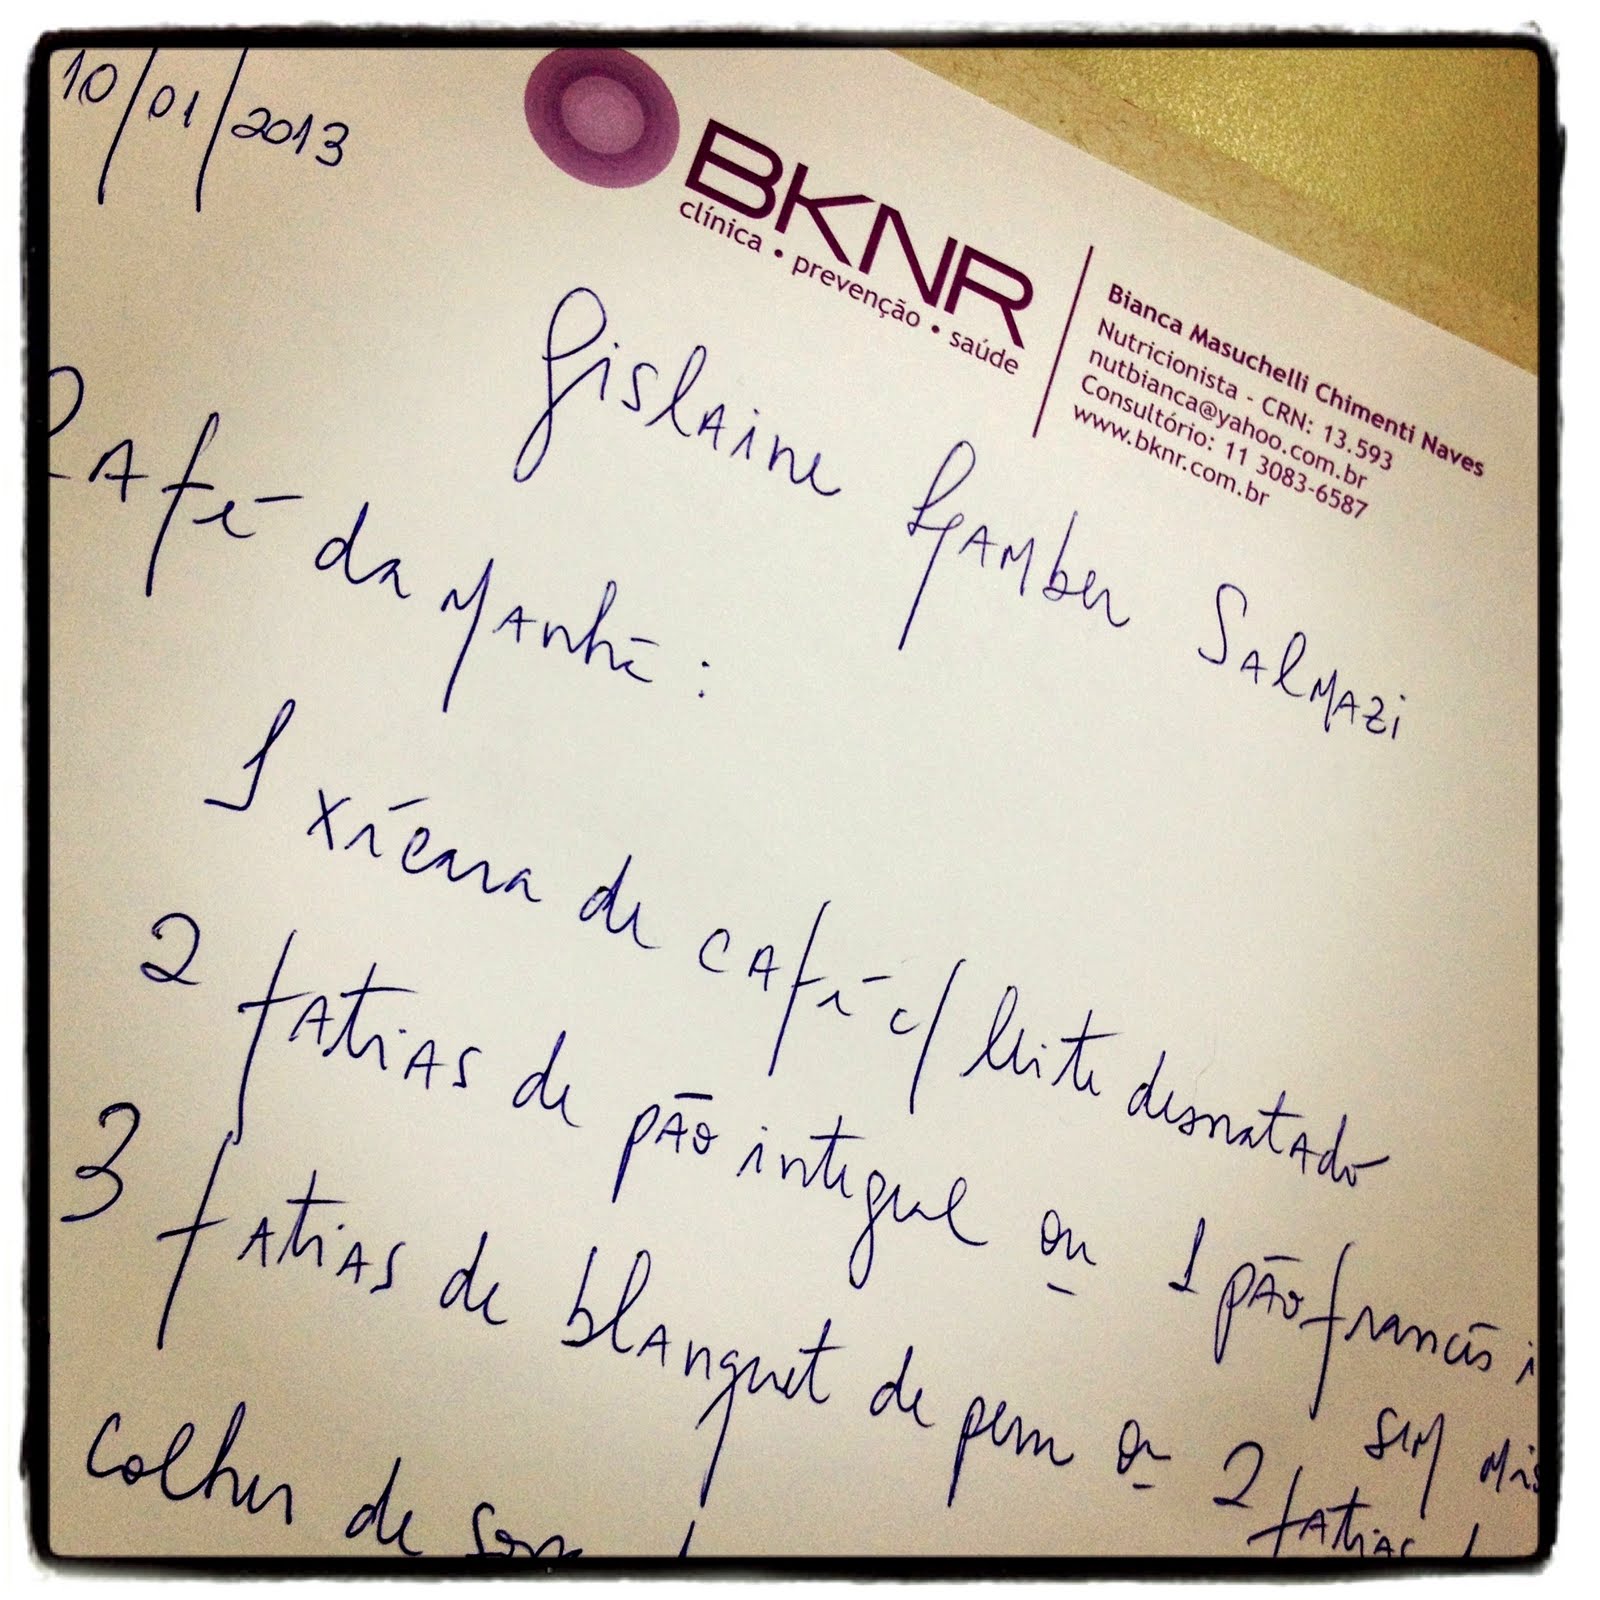 10/01/2013
BKNR
clínica • prevenção • saúde
Bianca Masuchelli Chimenti Naves
Nutricionista - CRN: 13.593
nutbianca@yahoo.com.br
Consultório: 11 3083-6587
www.bknr.com.br
Gislaine Gamber Salmazi
Café da Manhã:
1 xícara de café c/ leite desnatado
2 fatias de pão integral ou 1 pão francês
sem
3 fatias de blanquet de peru ou 2 fatias
colher de